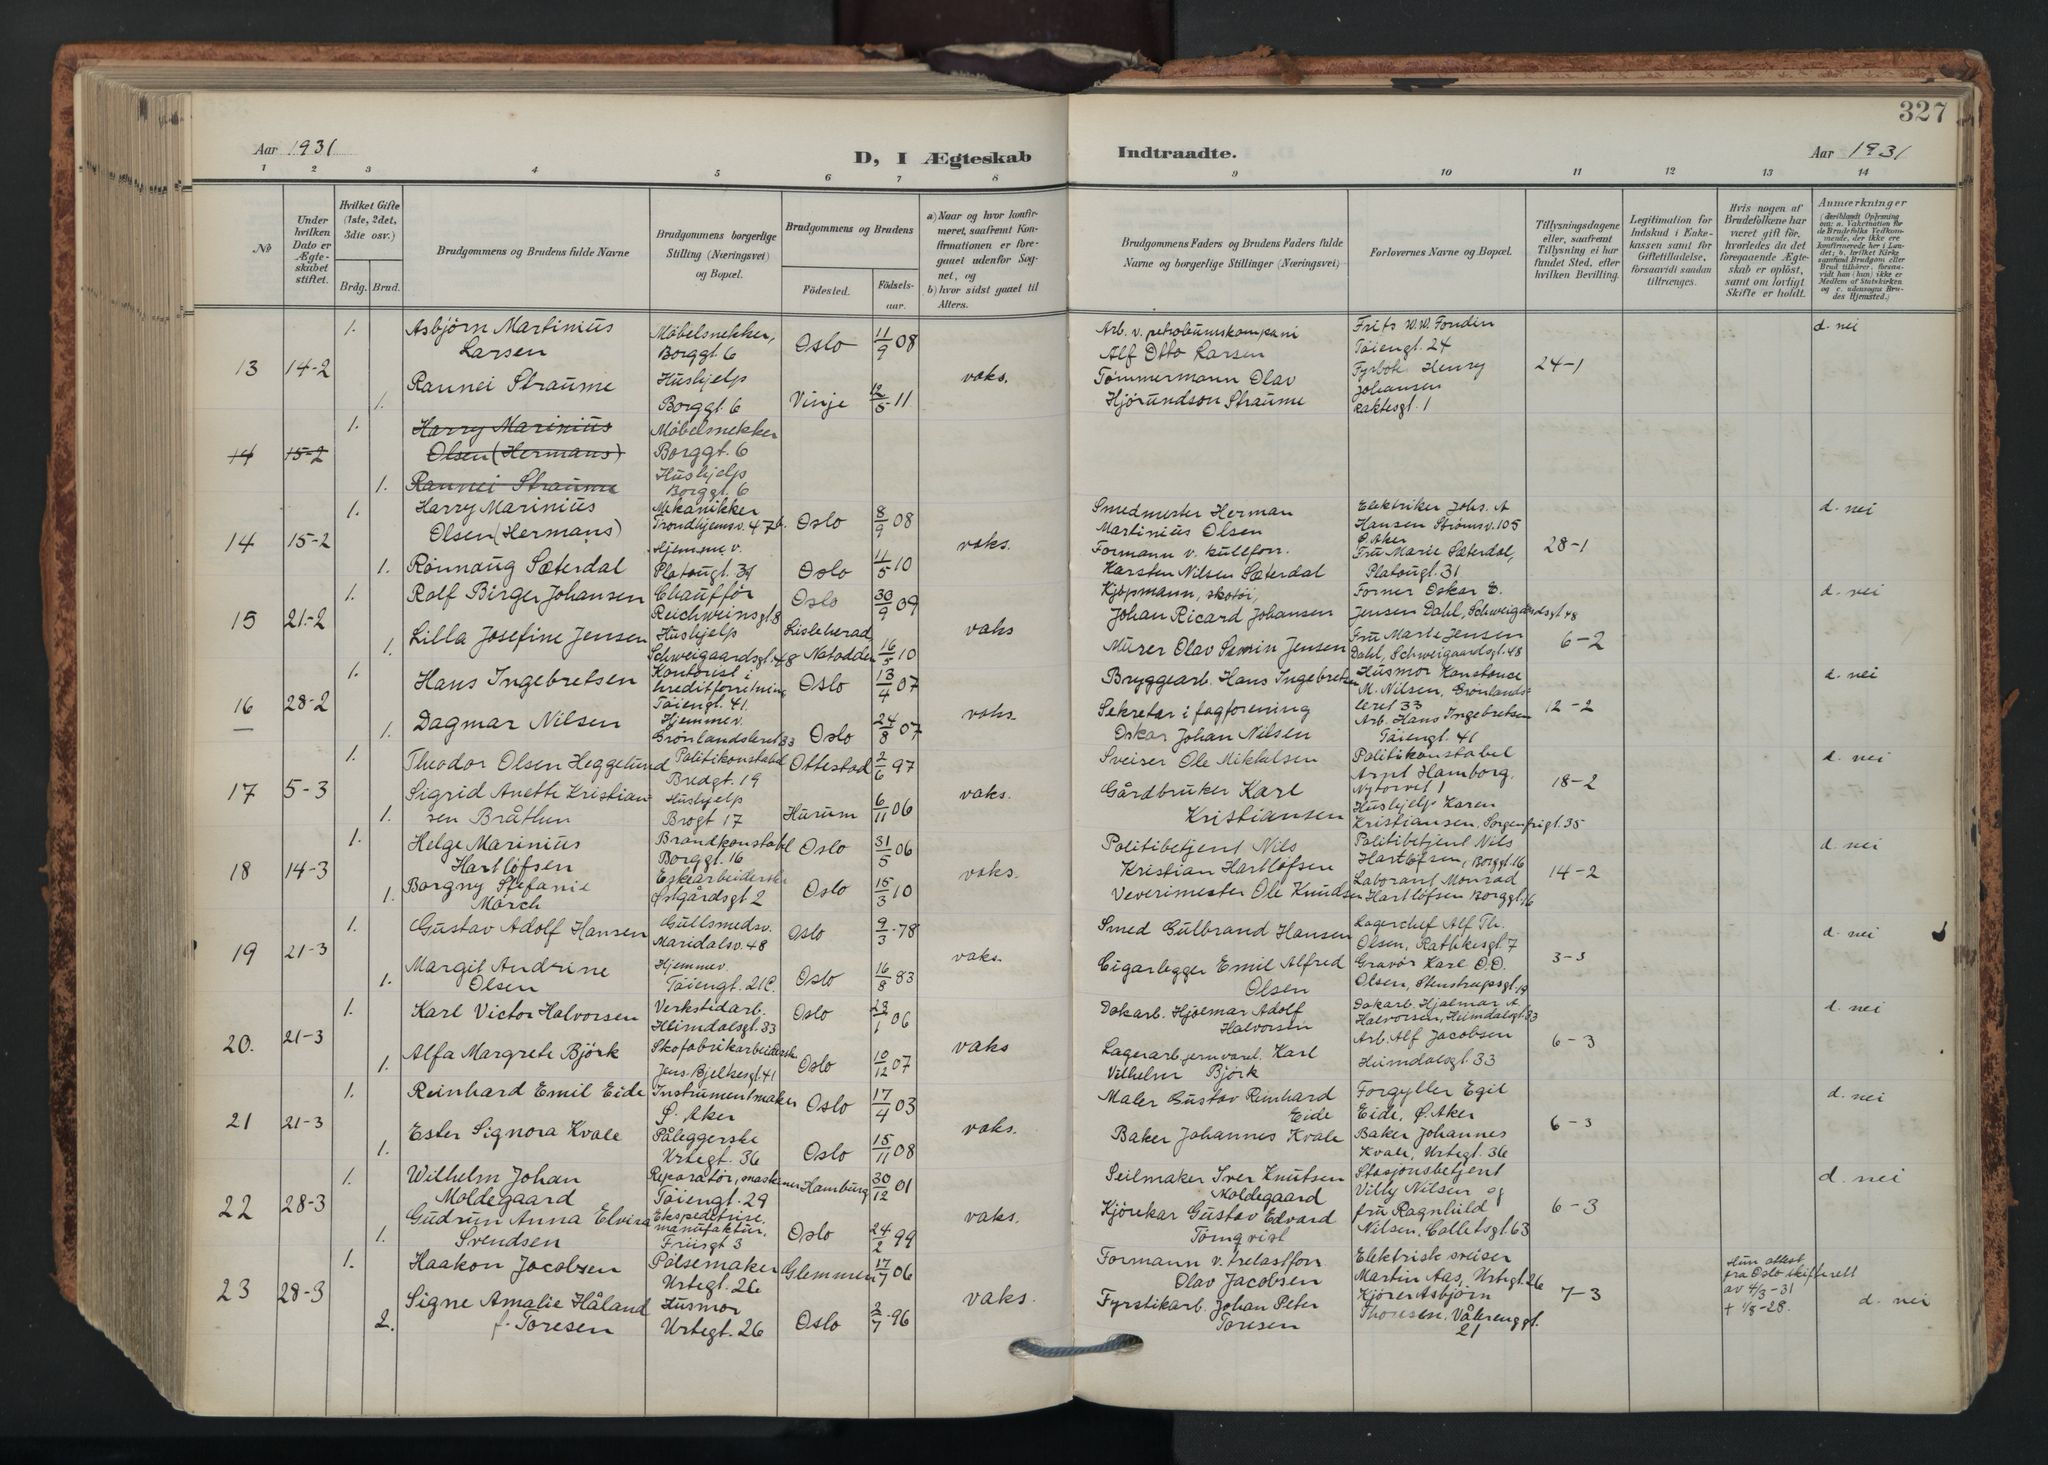 327
Aar 1931
D, I Ægteskab
Indtraadte.
Aar 1931
1 2 3 4 5 6 7 8 9 10 11 12 13 14
No
Under hvilken Dato er Ægteskabet stiftet.
Hvilket Gifte (1ste, 2det, 3die osv.)
Brdg. Brud.
Brudgommens og Brudens fulde Navne
Brudgommens borgerlige Stilling (Næringsvei) og Bopæl.
Brudgommens og Brudens
Fødested.
Fødselsaar.
a) Naar og hvor konfirmeret, saafremt Konfirmationen er foregaaet udenfor Sognet, og
b) hvor sidst gaaet til Alters.
Brudgommens Faders og Brudens Faders fulde Navne og borgerlige Stillinger (Næringsvei)
Forlovernes Navne og Bopæl.
Tillysningsdagene eller, saafremt Tillysning ei har fundet Sted, efter hvilken Bevilling.
Legitimation for Indskud i Enkekassen samt for Giftetilladelse, forsaavidt saadan tiltrænges.
Hvis nogen af Brudefolkene har været gift før, hvorledes da det foregaaende Ægteskab er opløst, samt om lovligt Skifte er holdt.
Anmerkninger
(deriblandt Oplysning om: a. Vakcination for de Brudefolks Vedkommende, der ikke ere konfirmerede her i Landet; b. hvilket Kirkesamfund Brudgom eller Brud tilhører, forsaavidt han (hun) ikke er Medlem af Statskirken og c. udensogns Brudes Hjemsted.)
13 14-2
1. Asbjørn Martinius Larsen Møbelsnekker, Borggt. 6 Oslo 11/9 08 vaks. Arb. v. petroleumskompani Alf Otto Larsen Frits W.W. Fondin Tøiengt. 24 24-1 d. nei
1. Rannei Straume Hushjelp Borggt. 6 Vinje 12/5 11 Tømmermann Olav Hjørundson Straume Fyrbøt. Henry Johansen Raktesgt. 1
14 15-2
1. Harry Marinius Olsen (Hermans) Møbelsnekker Borggt. 6
1. Rannei Straume Hushjelp Borggt. 6
14 15-2
1. Harry Marinius Olsen (Hermans) Mekanikker Trondhjemsv. 47b. Oslo 8/9 08 vaks. Smedmester Herman Martinius Olsen Elektriker Johs. A Hansen Strømsv. 105 Ø. Aker 28-1 d. nei
1. Rønnaug Sæterdal Hjemme v. Platougt. 31 Oslo 11/5 10 Formann v. kullforr. Karsten Nilsen Sæterdal Fru Marie Sæterdal, Platougt. 31
15 21-2
1. Rolf Birger Johansen Chauffør Reichweinsgt. 8 Oslo 30/9 09 vaks Kjøpmann, skotøi, Johan Ricard Johansen Former Oskar E. Jensen Dahl, Schweigaardsgt. 48 6-2 d. nei
1. Lilla Josefine Jensen Hushjelp Schweigaardsgt. 48 Lisleherad Notodden 16/5 10 Murer Olav Severin Jensen Fru Marie Jensen Dahl, Schweigaardsgt. 48
16 28-2
1. Hans Ingebretsen Kontorist i kreditforretning Tøiengt. 41. Oslo 13/4 07 vaks. Bryggearb. Hans Ingebretsen Husmor Konstance M. Nilsen, Grønlandsleret 33 12-2 d. nei
1. Dagmar Nilsen Hjemmev. Grønlandsleret 33 Oslo 24/8 07 Sekretær i fagforening Oskar Johan Nilsen Arb. Hans Ingebretsen Tøiengt. 41
17 5-3
1. Theodor Olsen Heggelund Politikonstabel Bredgt. 19 Ottestad 2/6 97 vaks. Sveiser Ole Mikkelsen Politikonstabel Arnt Hamborg, Nytorvet 1 18-2 d. nei
1. Sigrid Anette Kristiansen Bråthen Hushjelp Brogt 17 Hurum 6/11 06 Gårdbruker Karl Kristiansen Hushjelp Karen Kristiansen, Sorgenfrigt. 35
18 14-3
1. Helge Marinius Hartløfsen Brandkonstabel Borggt. 16 Oslo 31/5 06 vaks. Politibetjent Nils Kristian Hartløfsen Politibetjent Nils Hartløfsen, Borggt. 16 14-2 d. nei
1. Borgny Stefanie March Eskearbeiderske Østgårdsgt. 2 Oslo 15/3 10 Veverimester Ole Knudsen Laborant Monrad Hartløfsen Borggt. 16
19 21-3
1. Gustav Adolf Hansen Gullsmedsv. Maridalsv. 48 Oslo 9/3 78 vaks. Smed Gulbrand Hansen Lagerchef Alf Th. Olsen, Rathkesgt. 7 3-3 d. nei
1. Margit Andrine Olsen Hjemmev. Tøiengt. 21C. Oslo 16/8 83 Cigarlegger Emil Alfred Olsen Gravør Karl O.O. Olsen, Stenstrupsgt. 19
20. 21-3
1. Karl Victor Halvorsen Verkstedarb. Heimdalsgt. 33 Oslo 23/1 06 vaks Dokarb. Hjalmar Adolf Halvorsen Dokarb. Hjalmar A. Halvorsen, Heimdalsgt. 33 6-3 d. nei
1. Alfa Margrete Bjørk Skofabrikarbeiderske Jens Bjelkesgt. 41 Oslo 10/12 07 Lagerarb. jernvarel. Karl Vilhelm Bjørk Arb. Alf Jacobsen Heimdalsgt. 33
21 21-3
1. Reinhard Emil Eide Instrumentmaker Ø. Aker Oslo 17/4 03 vaks. Maler Gustav Reinhard Eide Forgyller Egil Eide, Ø. Aker 6-3 d. nei
1. Ester Signora Kvale Påleggerske Urtegt. 36 Oslo 15/11 08 Baker Johannes Kvale Baker Johannes Kvale, Urtegt. 36
22 28-3
1. Wilhelm Johan Moldegaard Reparatør, maskiner Tøiengt. 29 Hamburg 30/12 01 vaks. Seilmaker Iver Knutsen Moldegaard Stasjonsbetjent Villy Nilsen og 6-3 d. nei
1. Gudrun Anna Elvira Svendsen Ekspeditrise, manufaktur, Friisgt 3 Oslo 24/2 99 Kjørekar Gustav Edvard Törnqvist fru Ragnhild Nilsen, Colletsgt. 63
23 28-3
1. Haakon Jacobsen Pølsemaker Urtegt. 26 Glemmen 17/7 06 vaks. Formann v. trelastforr. Olav Jacobsen Elektrisk sveiser Martin Aas, Urtegt. 26 7-3 Hun attest fra Oslo skifterett av 4/3-31 + 1/8-28. d. nei
2. Signe Amalie Håland f. Toresen Husmor Urtegt. 26 Oslo 2/7 96 Fyrstikarb. Johan Peter Toresen Kjører Asbjørn Thoresen, Vålerenggt. 21